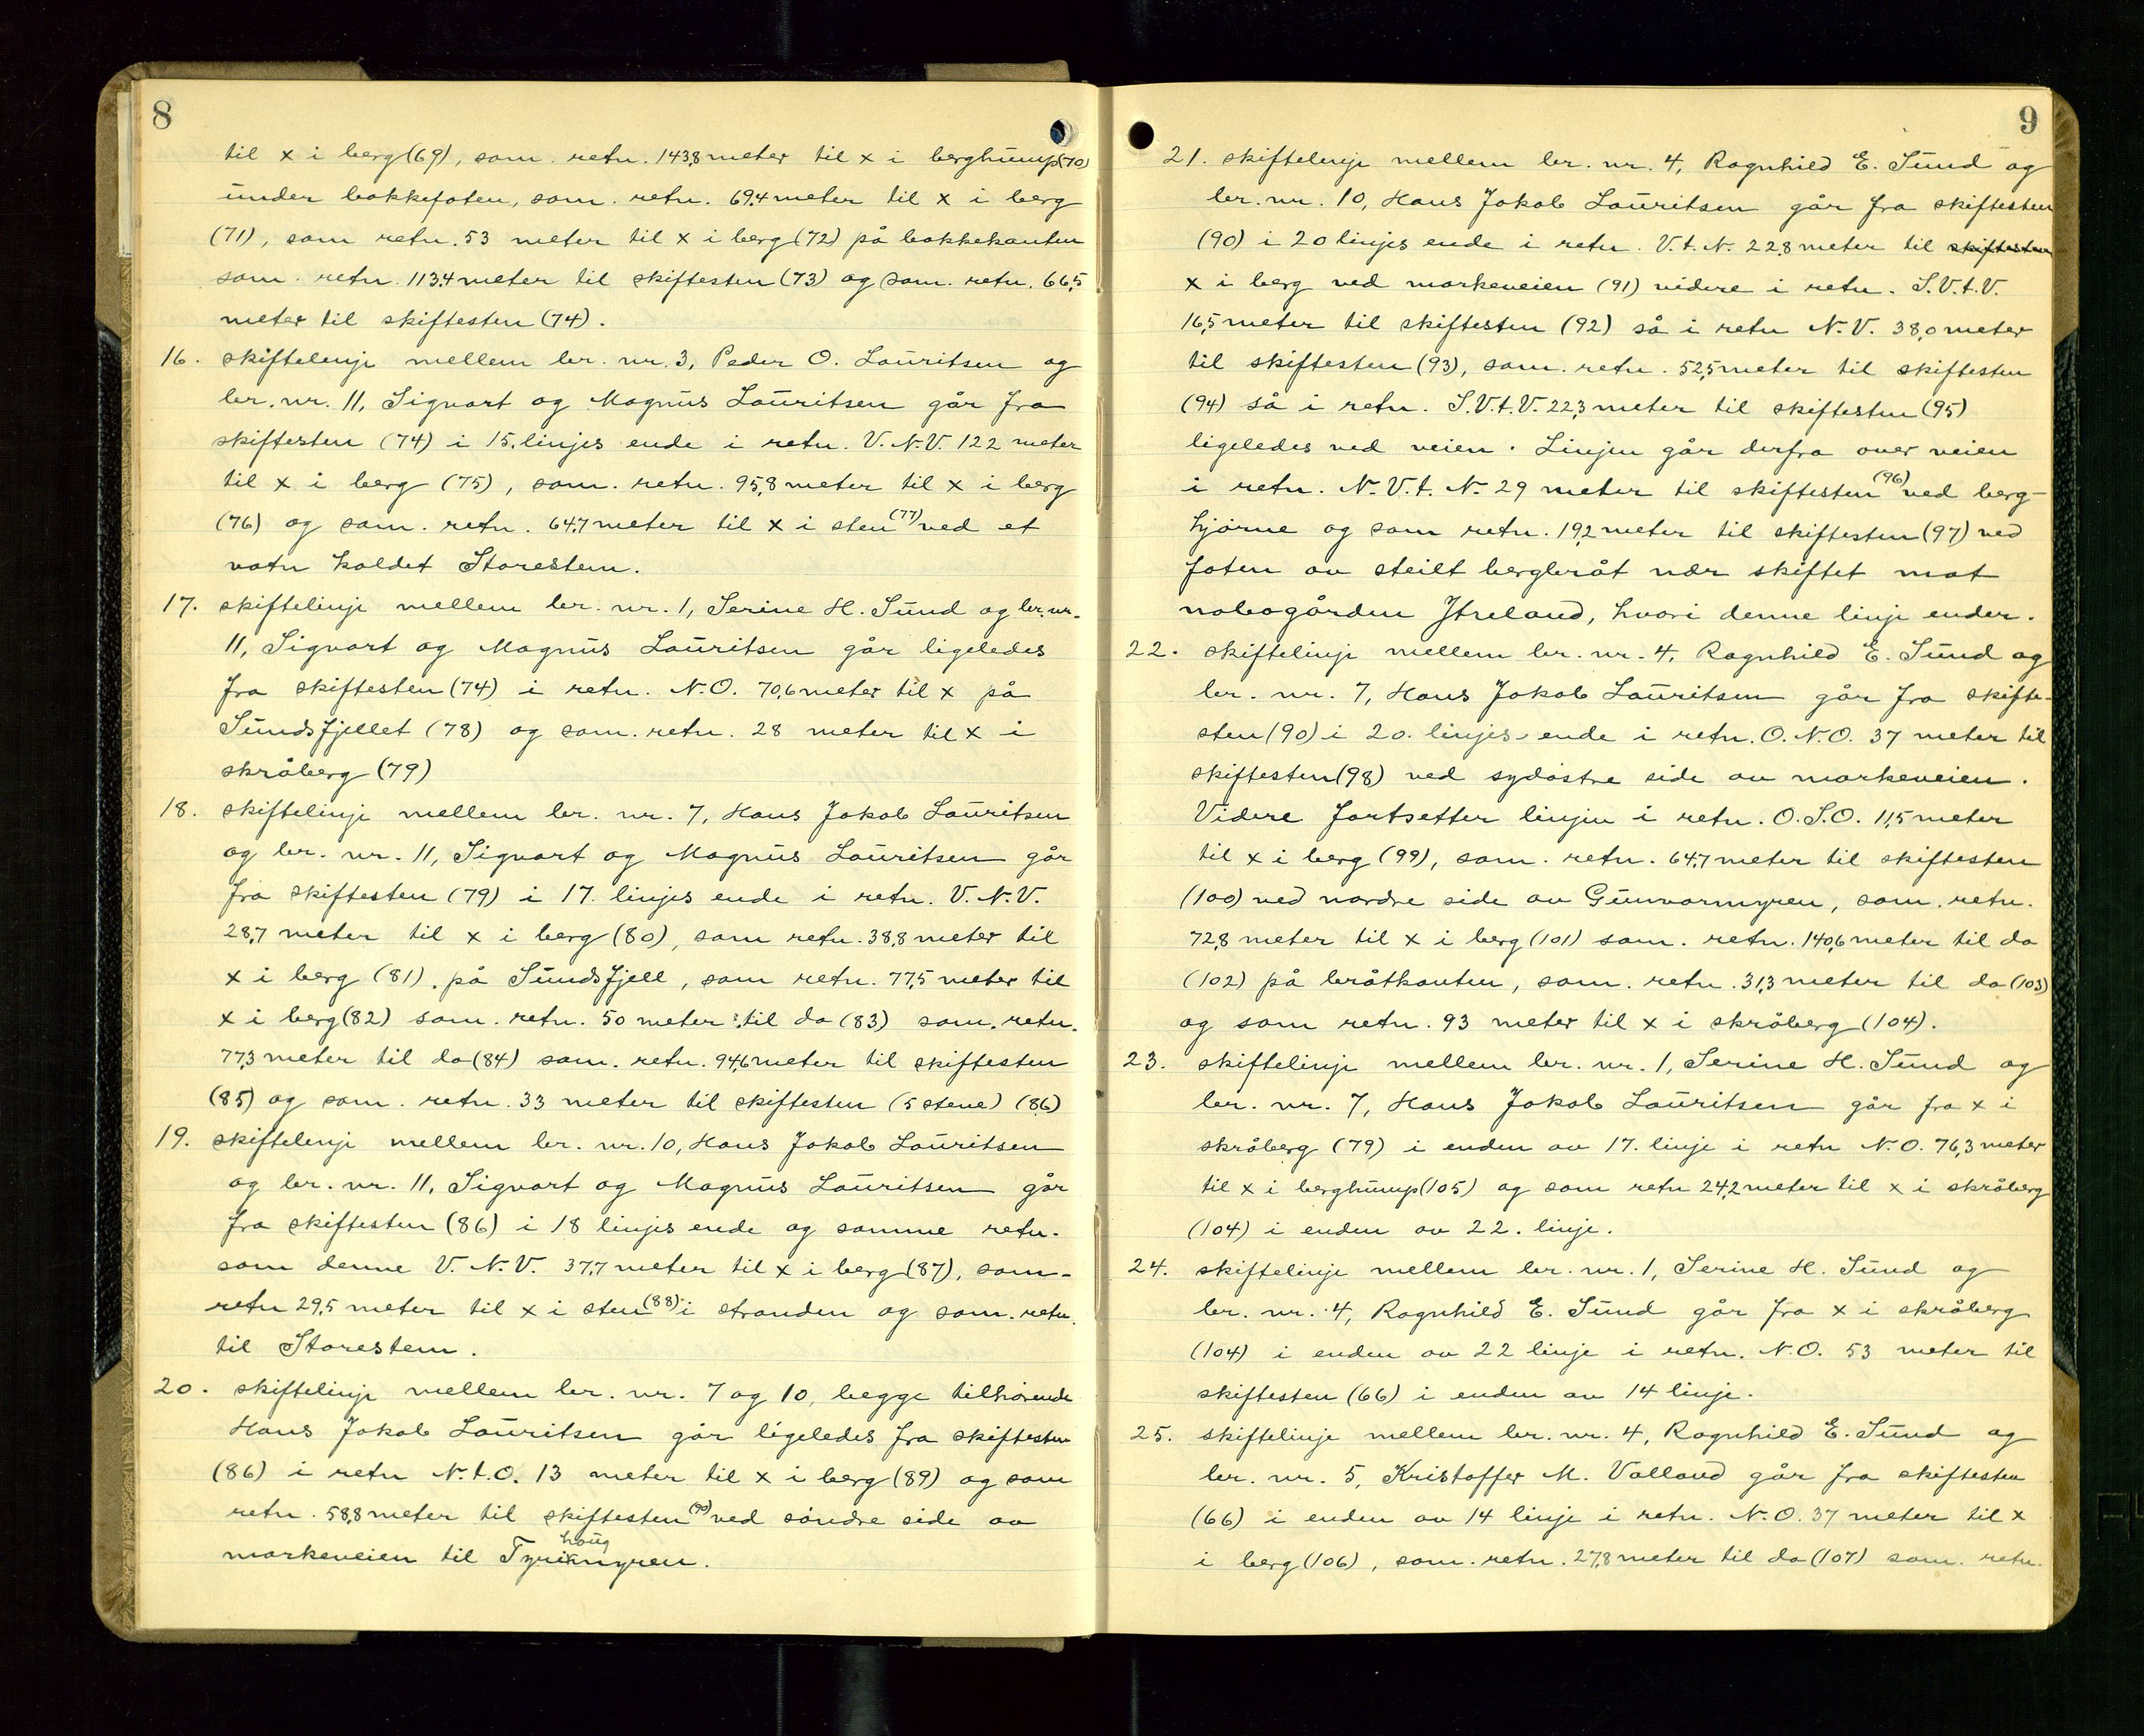 8
til x i berg (69), sam. retn. 143,8 meter til x i berghump (70)
under bakkefoten, sam. retn. 69,4 meter til x i berg
(71), sam retn. 53 meter til x i berg (72) på bakkekanten
sam. retn. 113,4 meter til skiftesten (73) og sam. retn. 66,5
meter til skiftesten (74).
16. skiftelinje mellem br. nr. 3, Peder O. Lauritsen og
br. nr. 11, Sigvart og Magnus Lauritsen går fra
skiftesten (74) i 15. linjes ende i retn. V. N.V. 122 meter
til x i berg (75), sam. retn. 95,8 meter til x i berg
(76) og sam. retn. 64,7 meter til x i sten (77) ved et
vatn kaldet Storestem.
17. skiftelinje mellem br. nr. 1, Serine H. Sund og br. nr.
11, Sigvart og Magnus Lauritsen går ligeledes
fra skiftesten (74) i retn. N.O. 70,6 meter til x på
Sundsfjellet (78) og sam. retn. 28 meter til x i
skråberg (79)
18. skiftelinje mellem br. nr. 7, Hans Jakob Lauritsen
og br. nr. 11, Sigvart og Magnus Lauritsen går
fra skiftesten (79) i 17. linjes ende i retn. V. N.V.
28,7 meter til x i berg (80), sam retn. 38,8 meter til
x i berg (81), på Sundsfjell, sam retn. 77,5 meter til
x i berg (82) sam. retn. 50 meter til do (83) sam. retn.
77,3 meter til do (84) sam. retn. 94,6 meter til skiftesten
(85) og sam. retn. 33 meter til skiftesten (5 stene) (86)
19. skiftelinje mellem br. nr. 10, Hans Jakob Lauritsen
og br. nr. 11, Sigvart og Magnus Lauritsen går
fra skiftesten (86) i 18 linjes ende og samme retn.
som denne V. N.V. 37,7 meter til x i berg (87), sam.
retn 29,5 meter til x i sten (88) i stranden og sam. retn.
til Storestem.
20. skiftelinje mellem br. nr. 7 og 10, begge tilhørende
Hans Jakob Lauritsen går ligeledes fra skiftesten
(86) i retn N.t.O. 13 meter til x i berg (89) og sam
retn. 58,8 meter til skiftesten (90) ved søndre side av
haug
markeveien til Tyrikmyren.
9
21. skiftelinje mellem br. nr. 4, Ragnhild E. Sund og
br. nr. 10, Hans Jakob Lauritsen går fra skiftesten
(90) i 20 linjes ende i retn. V.t.N. 22,8 meter til skiftesten
x i berg ved markeveien (91) videre i retn. S.V.t.V.
16,5 meter til skiftesten (92) så i retn N.V. 38,0 meter
til skiftesten (93), sam. retn. 52,5 meter til skiftesten
(94) så i retn. S.V.t.V. 22,3 meter til skiftesten (95)
ligeledes ved veien. Linjen går derfra over veien
i retn. N.V.t.N. 29 meter til skiftesten (96) ved berg-
hjørne og sam retn. 19,2 meter til skiftesten (97) ved
foten av steilt bergbråt nær skiftet mot
nabogården Ytreland, hvori denne linje ender.
22. skiftelinje mellem br. nr. 4, Ragnhild E. Sund og
br. nr. 7, Hans Jakob Lauritsen går fra skifte-
sten (90) i 20. linjes ende i retn. O.N.O. 37 meter til
skiftesten (98) ved sydøstre side av markeveien.
Videre fortsetter linjen i retn. O.S.O. 11,5 meter
til x i berg (99), sam. retn. 64,7 meter til skiftesten
(100) ved nordre side av Gunvarmyren, sam. retn.
72,8 meter til x i berg (101) sam. retn. 140,6 meter til do
(102) på bråtkanten, sam. retn. 31,3 meter til do (103)
og sam retn. 93 meter til x i skråberg (104).
23. skiftelinje mellem br. nr. 1, Serine H. Sund og
br. nr. 7, Hans Jakob Lauritsen går fra x i
skråberg (79) i enden av 17. linje i retn N.O. 76,3 meter
til x i berghump (105) og sam retn 24,2 meter til x i skråberg
(104) i enden av 22. linje.
24. skiftelinje mellem br. nr. 1, Serine H. Sund og
br. nr. 4, Ragnhild E. Sund går fra x i skråberg
(104) i enden av 22 linje i retn. N.O. 53 meter til
skiftesten (66) i enden av 14 linje.
25. skiftelinje mellem br. nr. 4, Ragnhild E. Sund og
br. nr. 5, Kristoffer M. Valland går fra skiftesten
(66) i enden av 14 linje i retn. N.O. 37 meter til x
i berg (106), sam. retn. 27,8 meter til do (107) sam. retn.